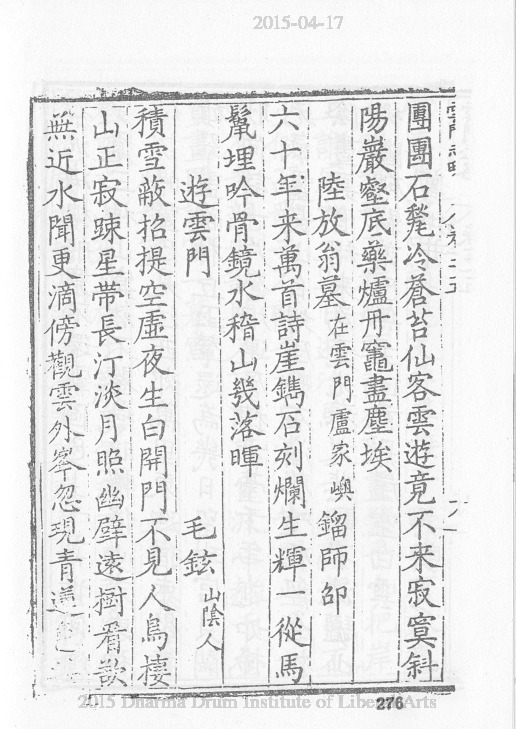 2015-04-17
雲門志略 卷之五
團團石凳冷蒼苔仙客雲遊竟不来寂寞斜
陽巖壑底藥爐丹竈盡塵埃
陸放翁墓在雲門盧家㠘 鎦師邵
六十年来萬首詩崖鐫石刻爛生輝一從馬
鬛埋吟骨鏡水稽山幾落暉
遊雲門 毛鉉山陰人
積雪敞招提空虛夜生白開門不見人鳥棲
山正寂踈星帶長汀淡月照幽壁遠樹看欲
無近水聞更滴傍觀雲外峯忽現青
2015 Dharma Drum Institute of Liberal Arts
276